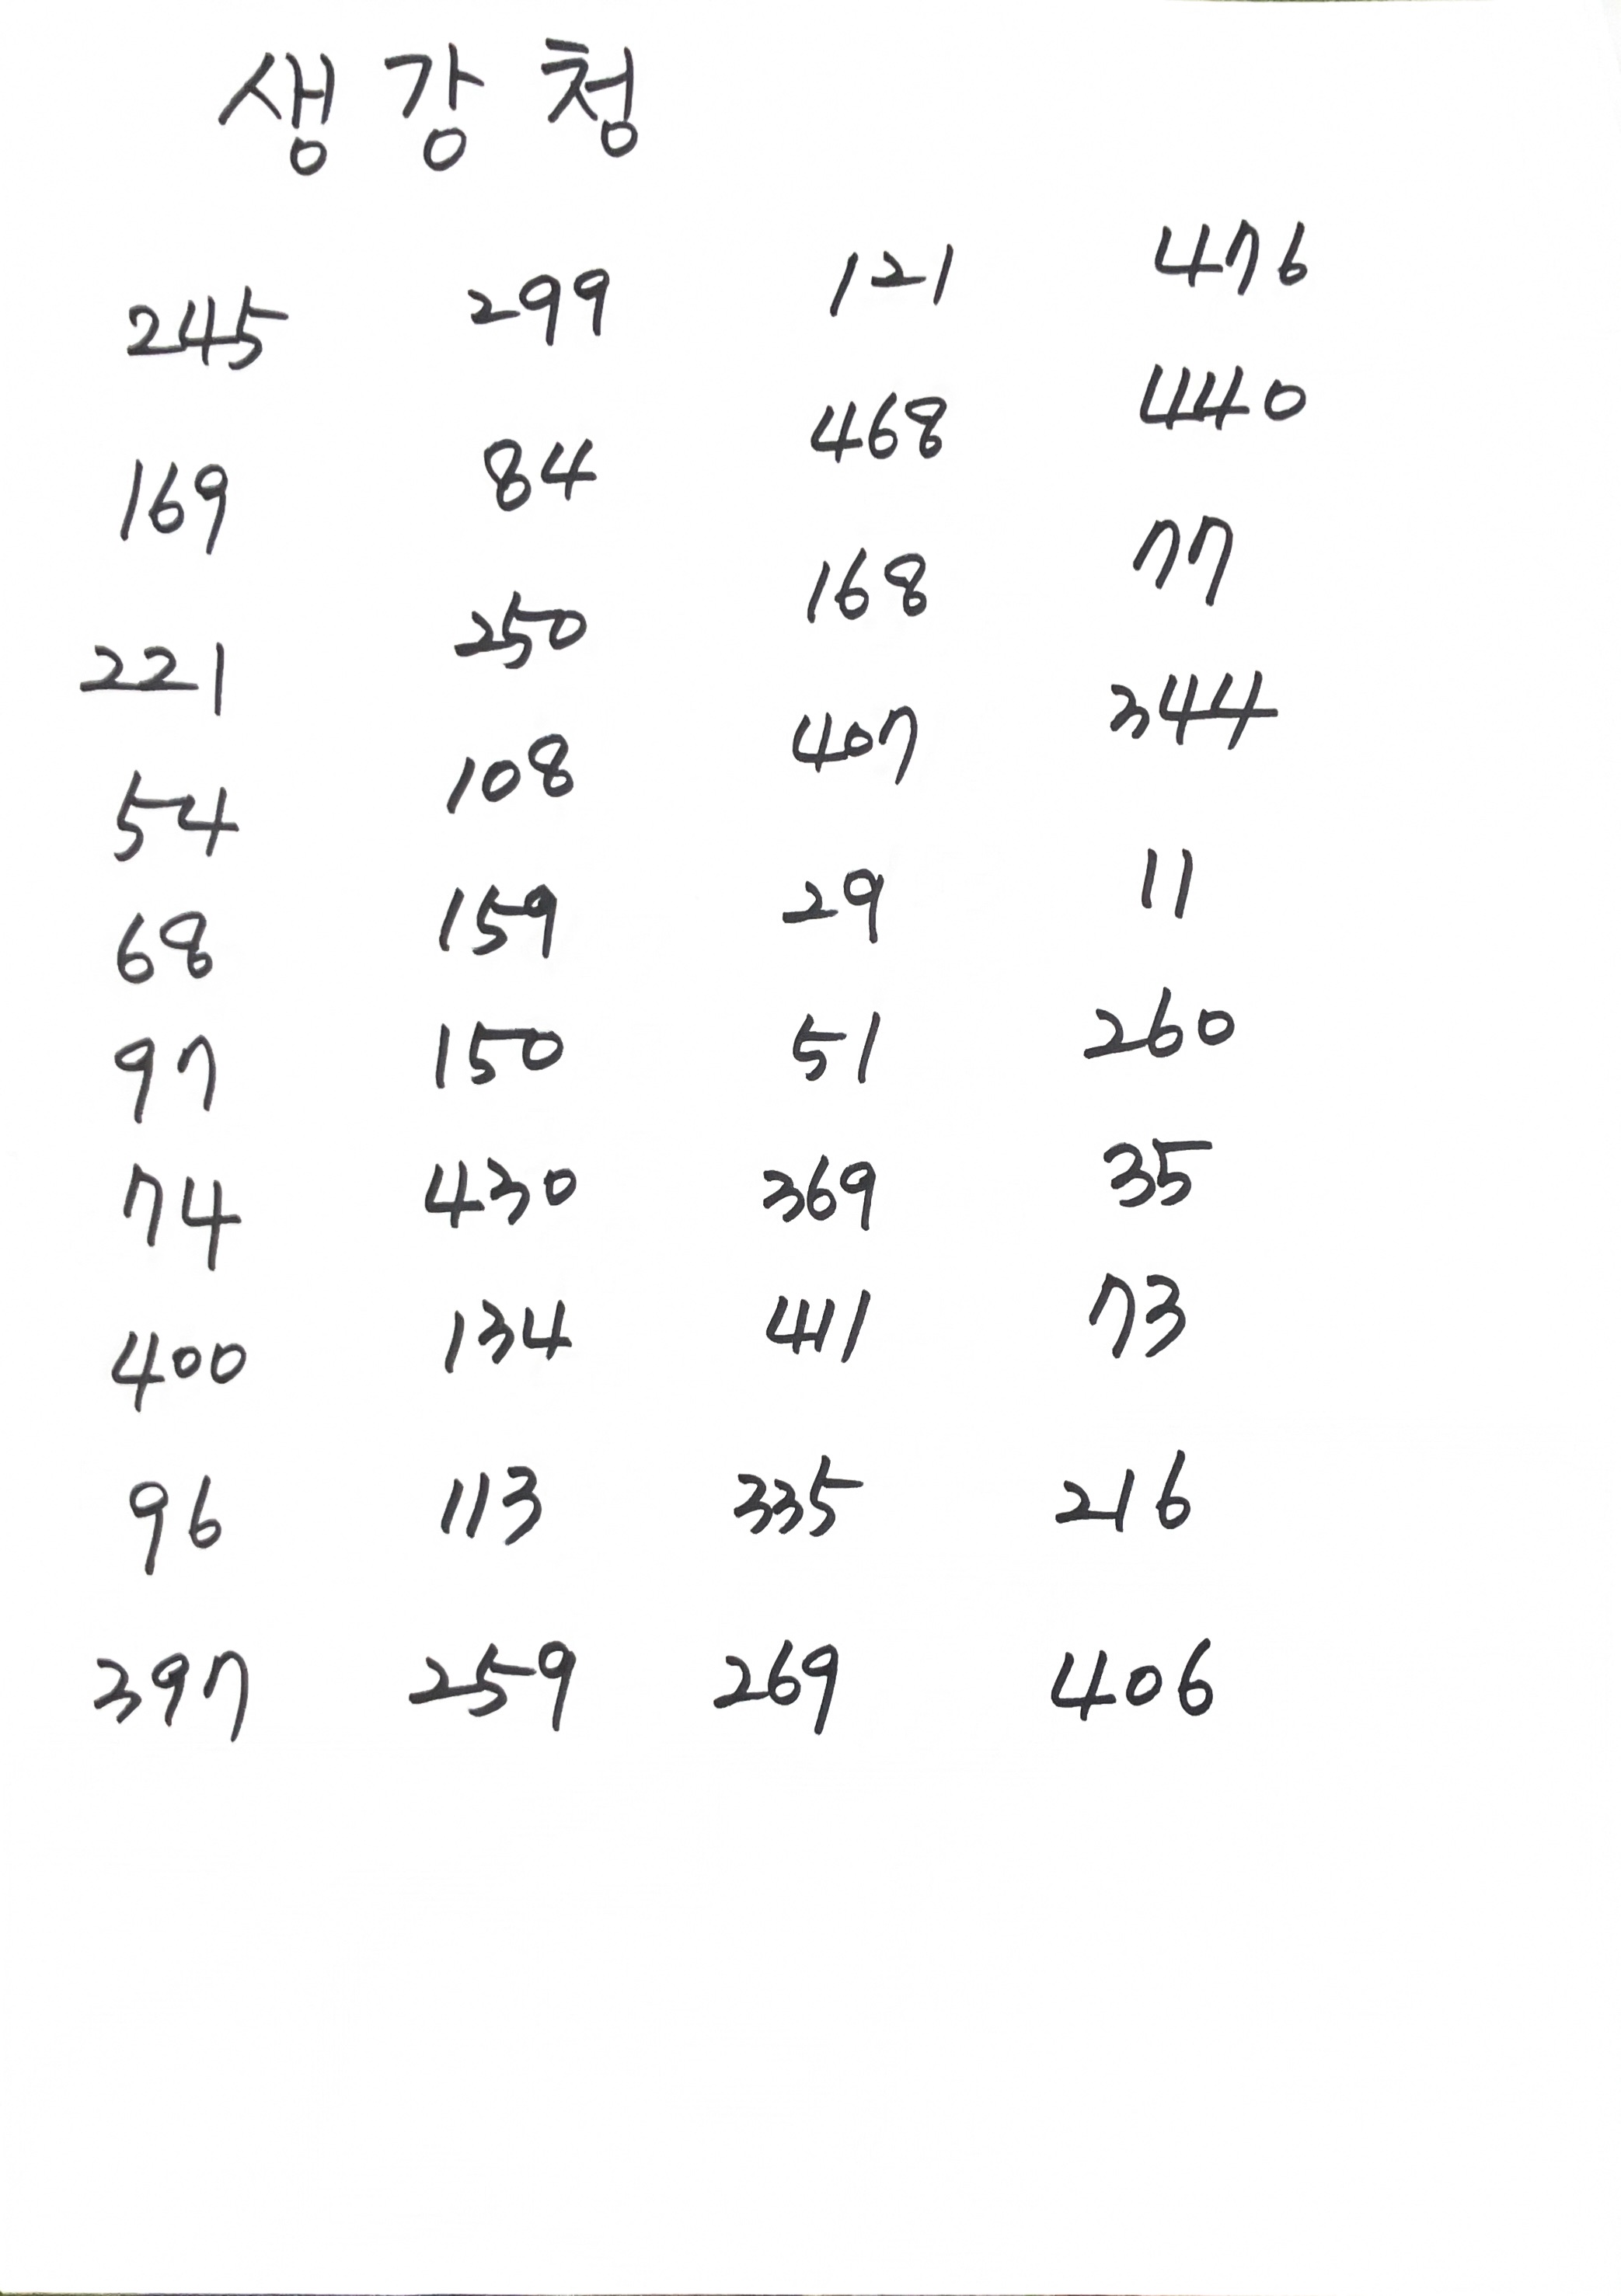 생강청
245 299 121 476
169 84 468 440
221 250 168 77
54 108 407 344
68 159 29 11
97 150 51 260
74 430 369 35
400 134 441 73
96 113 335 216
397 259 269 406